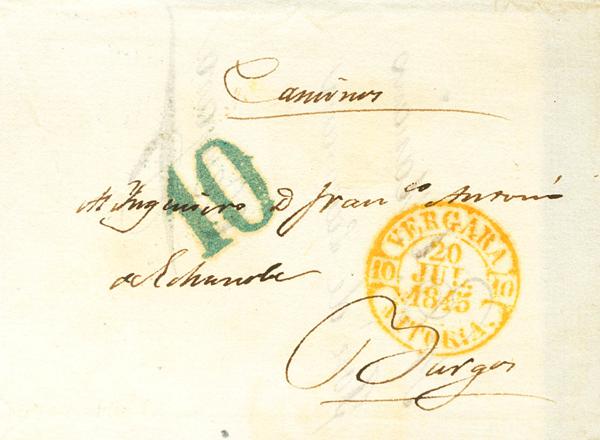 Caminos
10
Al Ingeniero D Fran.co Antonio
de Echanove
VERGARA
20
JUL
1845
10 10
VITORIA.
Burgos